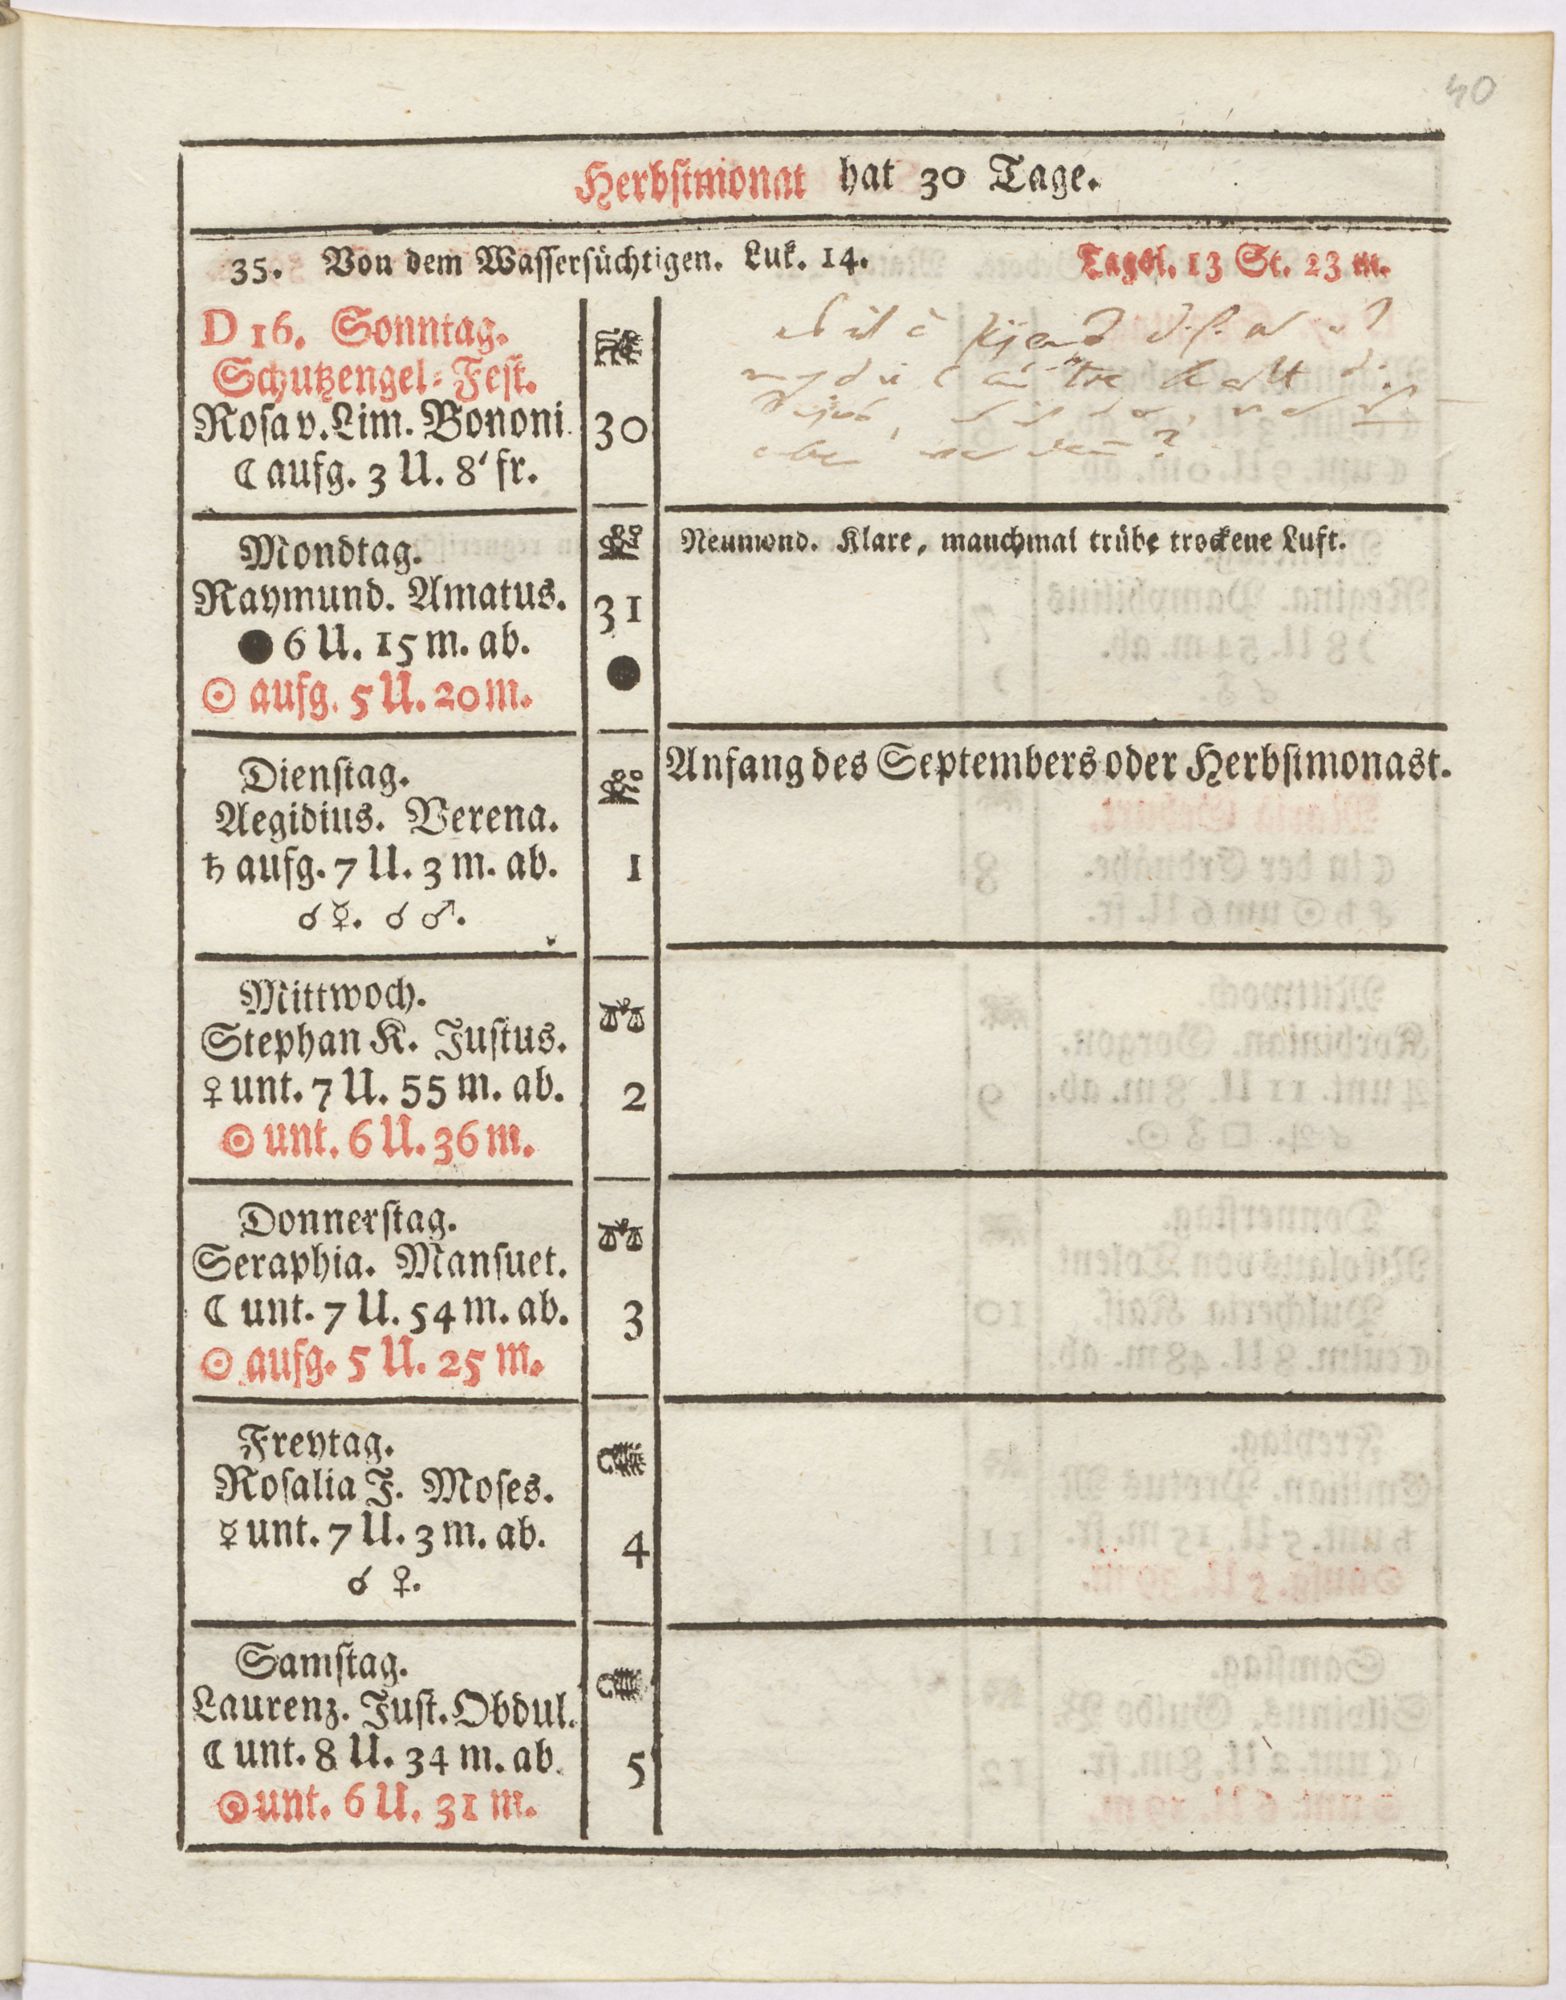 40
Herbstmonat hat 30 Tage.
35. Von dem Wassersüchtigen. Luk. 14. Tagsl. 13 St. 23 m.
D 16. Sonntag.
Schutzengel-Fest.
Rosa v. Lim. Bononi. 30
☾ aufg. 3 U. 8' fr.
Mondtag. Neumond. Klare, manchmal trübe trockene Luft.
Raymund. Amatus. 31
● 6 U. 15 m. ab. ●
☉ aufg. 5 U. 20 m.
Anfang des Septembers oder Herbstmonast.
Dienstag.
Aegidius. Verena.
♄ aufg. 7 U. 3 m. ab. 1
☌ ☿. ☌ ♂.
Mittwoch.
Stephan K. Justus.
♀ unt. 7 U. 55 m. ab. 2
☉ unt. 6 U. 36 m.
Donnerstag.
Seraphia. Mansuet.
☾ unt. 7 U. 54 m. ab. 3
☉ aufg. 5 U. 25 m.
Freytag.
Rosalia J. Moses.
☿ unt. 7 U. 3 m. ab. 4
☌ ♀.
Samstag.
Laurenz. Just. Obdul.
☾ unt. 8 U. 34 m. ab. 5
☉ unt. 6 U. 31 m.